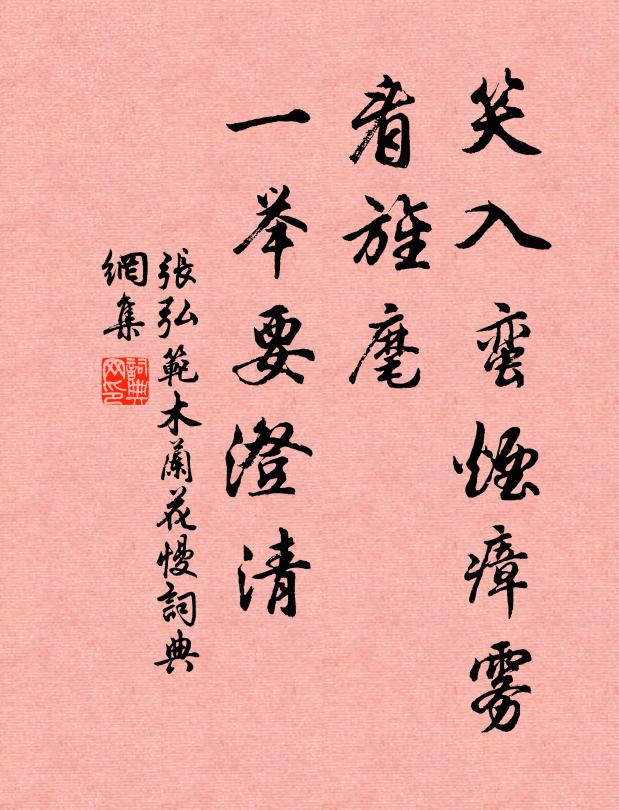 笑入蛮煙瘴雾
看旌麾
一举要澄清
張弘範木蘭花慢詞典
網集
詞典
网印